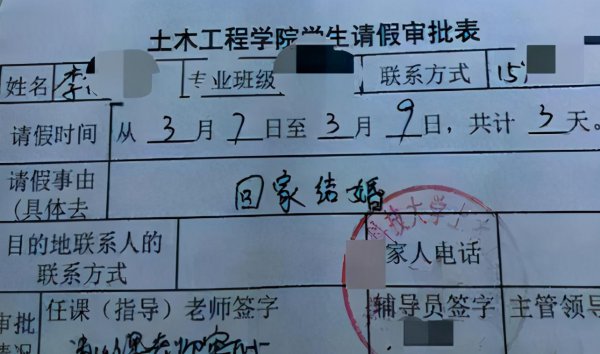 土木工程学院学生请假审批表
姓名 李 专业班级 联系方式 15
请假时间 从 3 月 7 日至 3 月 9 日，共计 3 天。
请假事由 回家结婚
(具体去
目的地联系人的 家人电话
联系方式
科技大学土木
任课（指导）老师签字 辅导员签字 主管领导
审批
情况